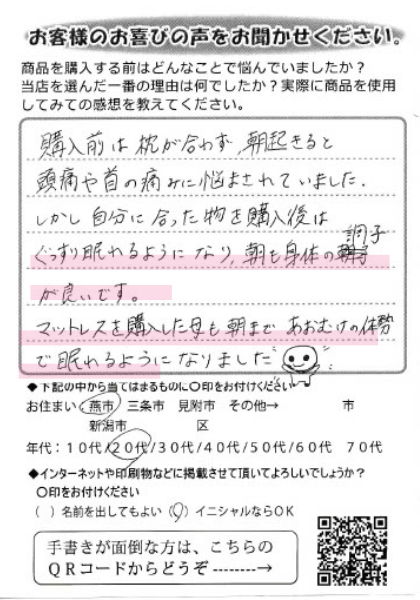 お客様のお喜びの声をお聞かせください。
商品を購入する前はどんなことで悩んでいましたか?
当店を選んだ一番の理由は何でしたか?実際に商品を使用
してみての感想を教えてください。
購入前は枕が合わず、朝起きると
頭痛や首の痛みに悩まされていました.
しかし自分に合った物を購入後は
調子
ぐっすり眠れるようになり、朝も身体の
が良いです。
マットレスを購入した母も朝まであおむけの体勢
で眠れるようになりました
◆下記の中から当てはまるものに〇印をお付けください
お住まい:燕市 三条市 見附市 その他→ 市
新潟市 区
年代:10代/20代/30代/40代/50代/60代 70代
◆インターネットや印刷物などに掲載させて頂いてよろしいでしょうか?
〇印をお付けください
( )名前を出してもよい (〇)イニシャルならOK
手書きが面倒な方は、こちらの
QRコードからどうぞ--------→